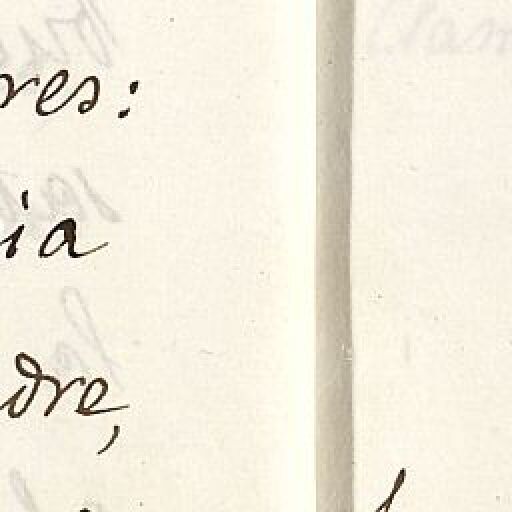 res:
ia
dre,